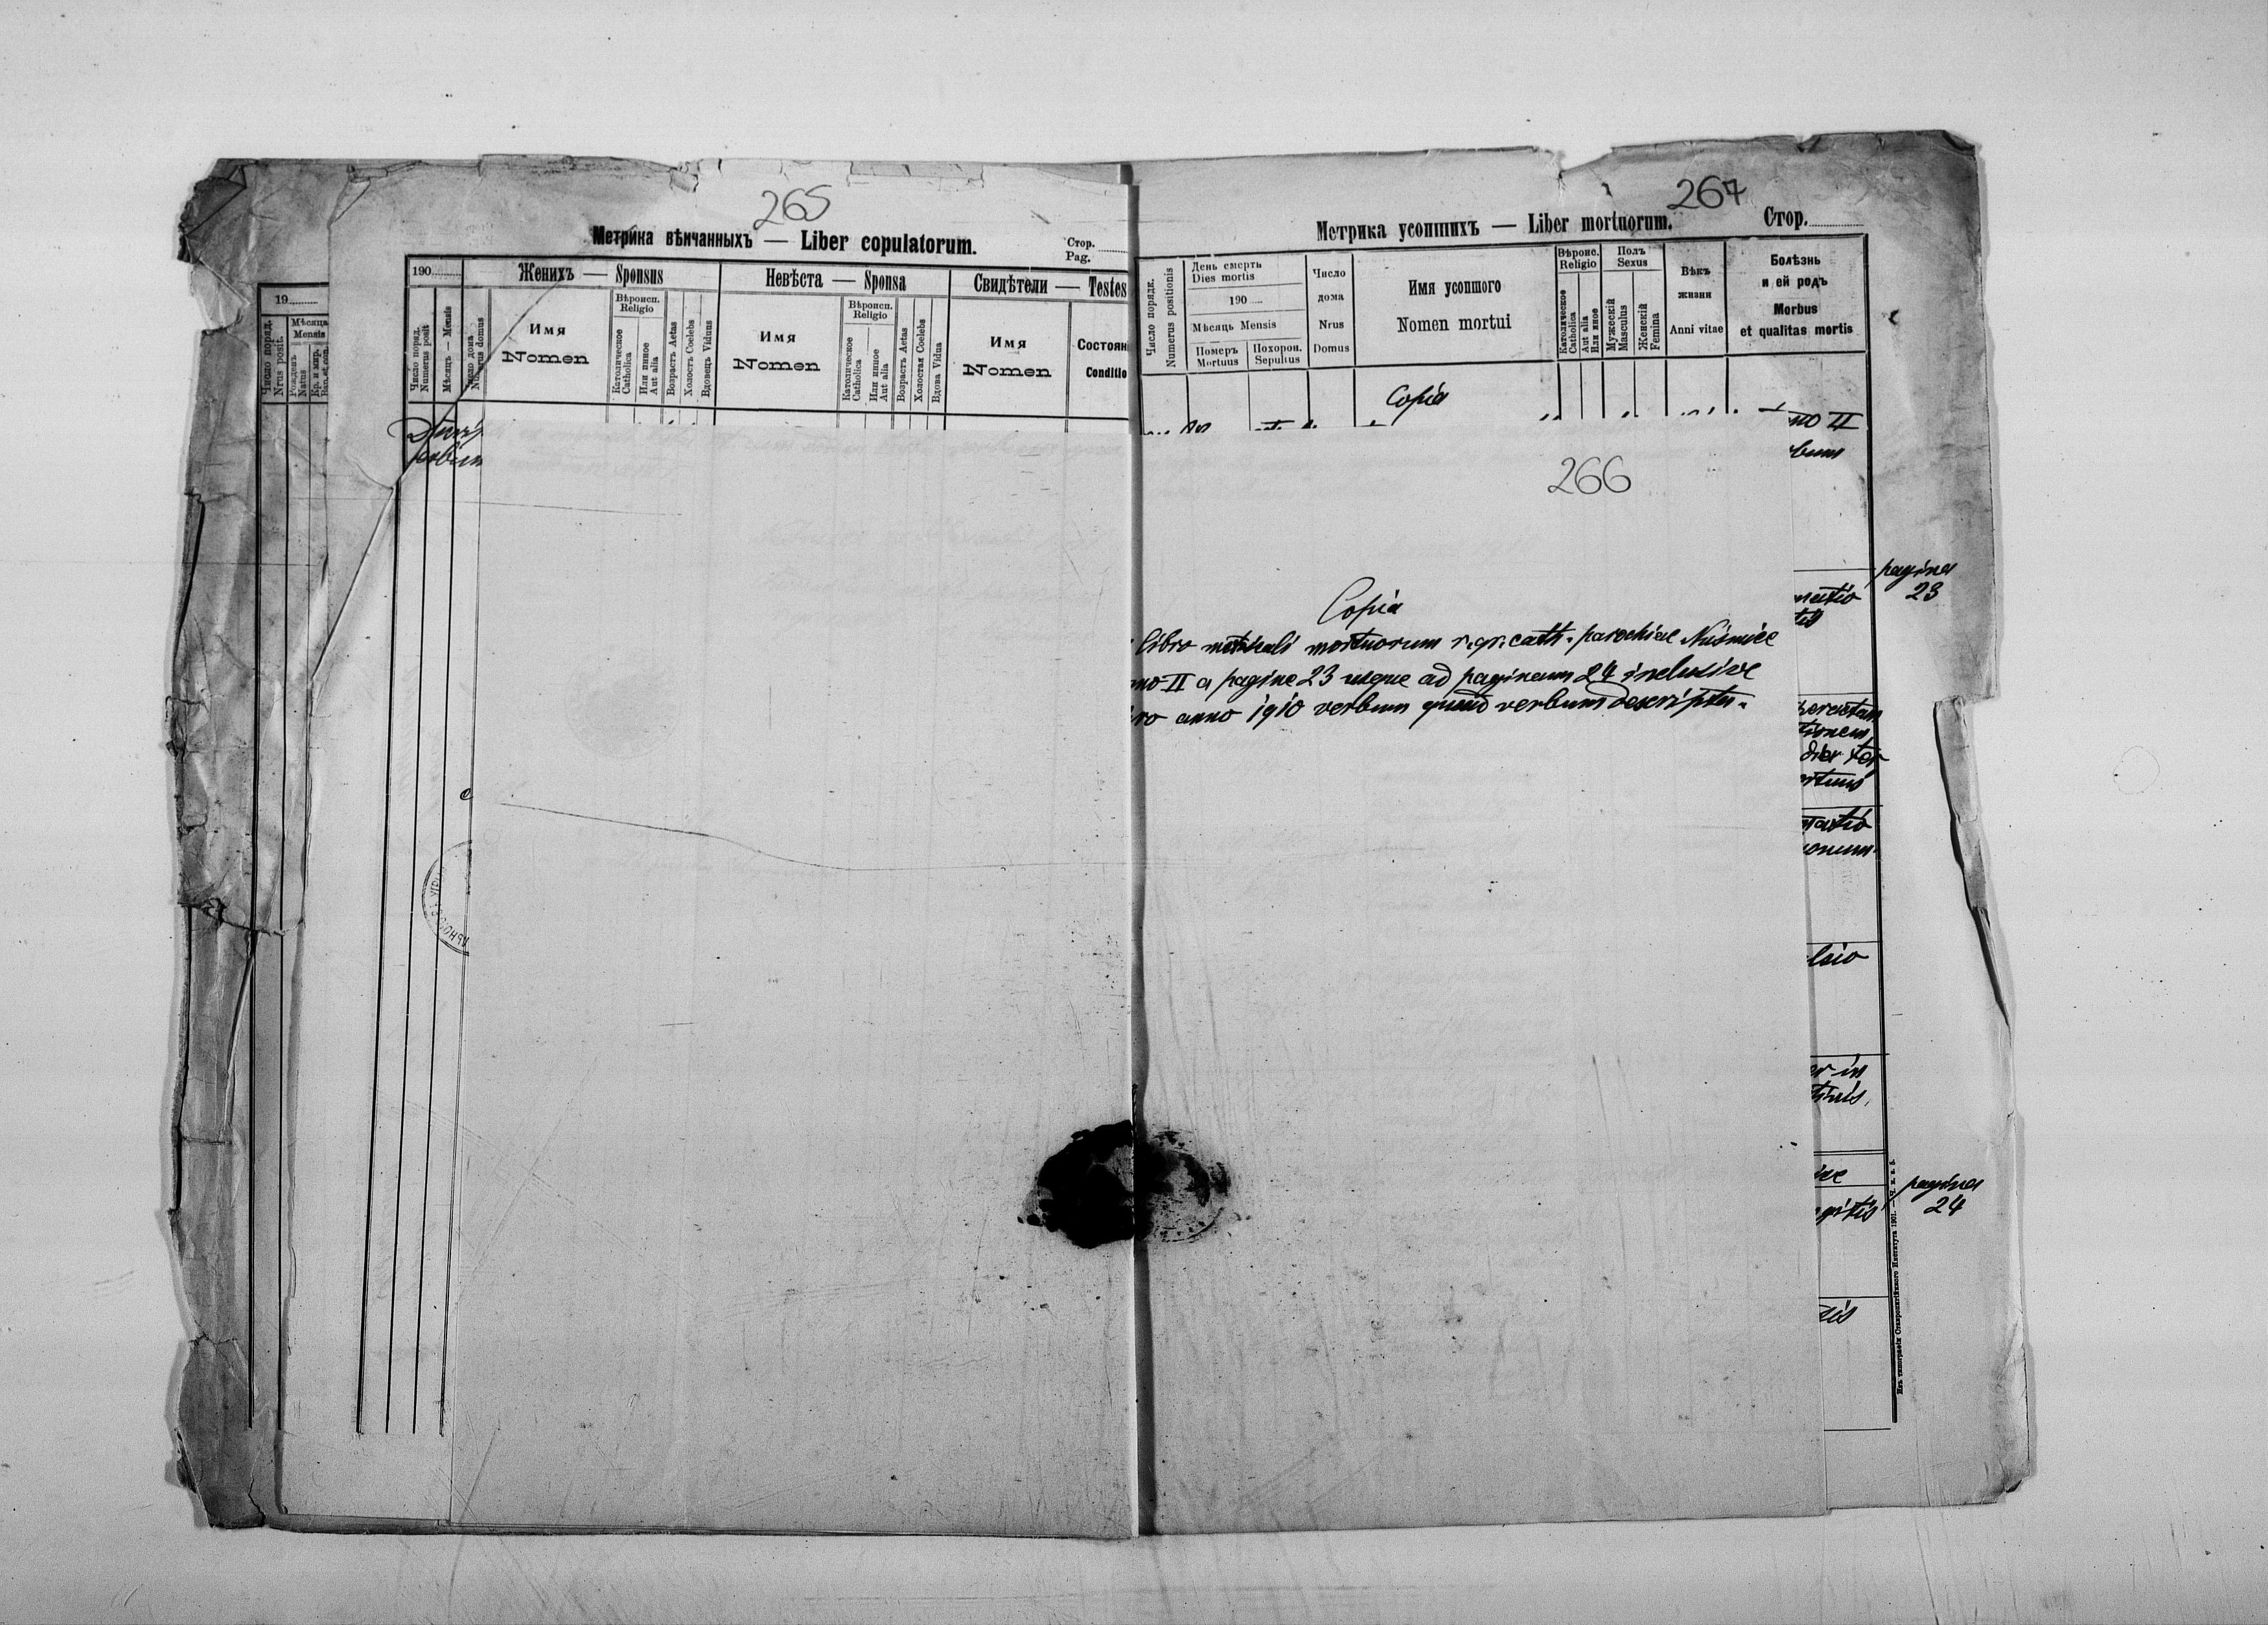 265
Метрика вѣнчанныхъ — Liber copulatorum.
Стор.
Pag.
19
Число поряд.
Nrus posit.
Мѣсяца
Mensis
Рожденъ
Natus
Кр. и мир.
190
Женихъ — Sponsus
Невѣста — Sponsa
Свидѣтели — Testes
Число поряд.
Numerus posit
Мѣсяцъ — Mensis
Число дома
Numerus domus
Имя
Nomen
Вѣроисп.
Religio
Католическое
Catholica
Или инное
Aut alia
Возрастъ Aetas
Холостъ Coelebs
Вдовецъ Viduus
Имя
Nomen
Вѣроисп.
Religio
Католическое
Catholica
Или инное
Aut alia
Возрастъ Aetas
Холостая Coelebs
Вдова Vidua
Имя
Nomen
Состоян
Conditio
267
Метрика усопшихъ — Liber mortuorum.
Стор.
Число порядк.
Numerus positionis
День смерть
Dies mortis
190
Мѣсяць Mensis
Померъ
Mortuus
Похорон.
Sepultus
Число
дома
Nrus
Domus
Имя усопшого
Nomen mortui
Вѣроис.
Religio
Католическое
Catholica
Aut alia
Или иное
Полъ
Sexus
Мужескій
Masculus
Женскій
Femina
Вѣкъ
жизни
Anni vitae
Болѣзнь
и ей родъ
Morbus
et qualitas mortis
Copia
no II
bum
266
pagina
23
Copia
libro metricali mortuorum r. gr. cath. parochiae Nusmice
mo II a pagina 23 usque ad paginam 24 inclusive
ro anno 1910 verbum quoad verbum descripta.
tionem
ortuus
lsio
er in
pagina
24
Изъ типографіи Ставропигійского Института 1901. — Ч. в. 5.